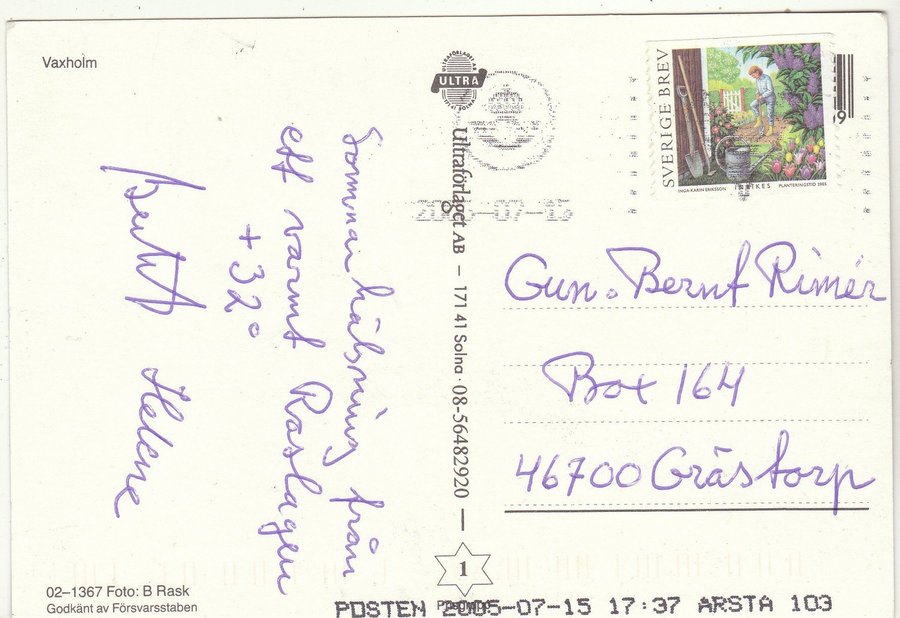 Vaxholm
Sommarhälsning från
ett varmt Roslagen
+32°
Helene
ULTRAFÖRLAGET AB
ULTRA
171 41 SOLNA
Ultraförlaget AB – 171 41 Solna · 08-56482920 –
1
2005-07-15
SVERIGE BREV
INGA-KARIN ERIKSSON
PLANTERINGSTID 2005
Gun o Bernt Rimér
Box 164
46700 Grästorp
02–1367 Foto: B Rask
Godkänt av Försvarsstaben
POSTEN 2005-07-15 17:37 ARSTA 103